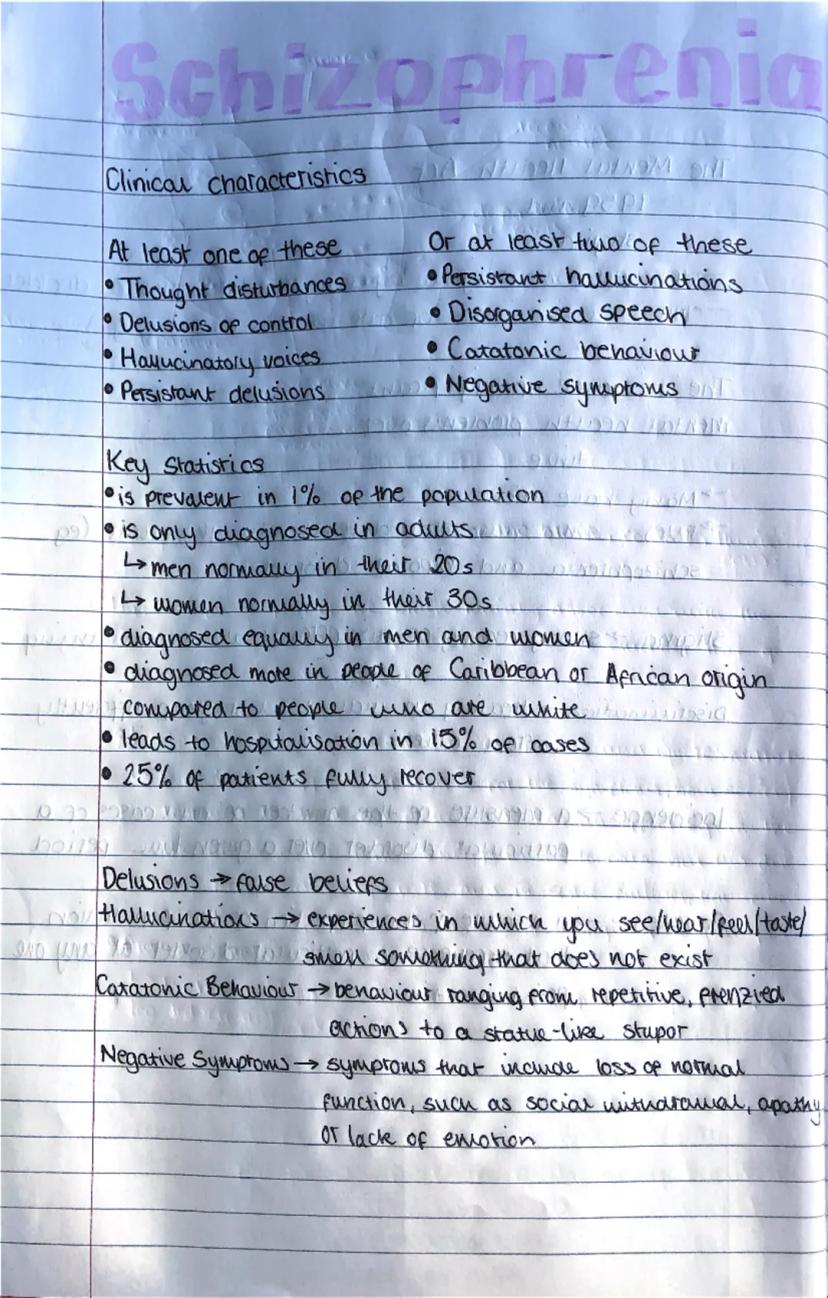 Schizophrenia
Clinical characteristics
At least one of these
• Thought disturbances
• Delusions of control
• Hallucinatory voices
• Persistant delusions
Or at least two of these
• Persistant hallucinations
• Disorganised speech
• Catatonic behaviour
• Negative symptoms
Key Statistics
• is prevalent in 1% of the population
• is only diagnosed in adults
↳ men normally in their 20s
↳ women normally in their 30s
• diagnosed equally in men and women
• diagnosed more in people of Caribbean or African origin
compared to people who are white
• leads to hospitalisation in 15% of cases
• 25% of patients fully recover
Delusions → false beliefs
Hallucinations → experiences in which you see/hear/feel/taste/
smell something that does not exist
Catatonic Behaviour → behaviour ranging from repetitive, frenzied
actions to a statue-like stupor
Negative Symptoms → symptoms that include loss of normal
function, such as social withdrawal, apathy
or lack of emotion